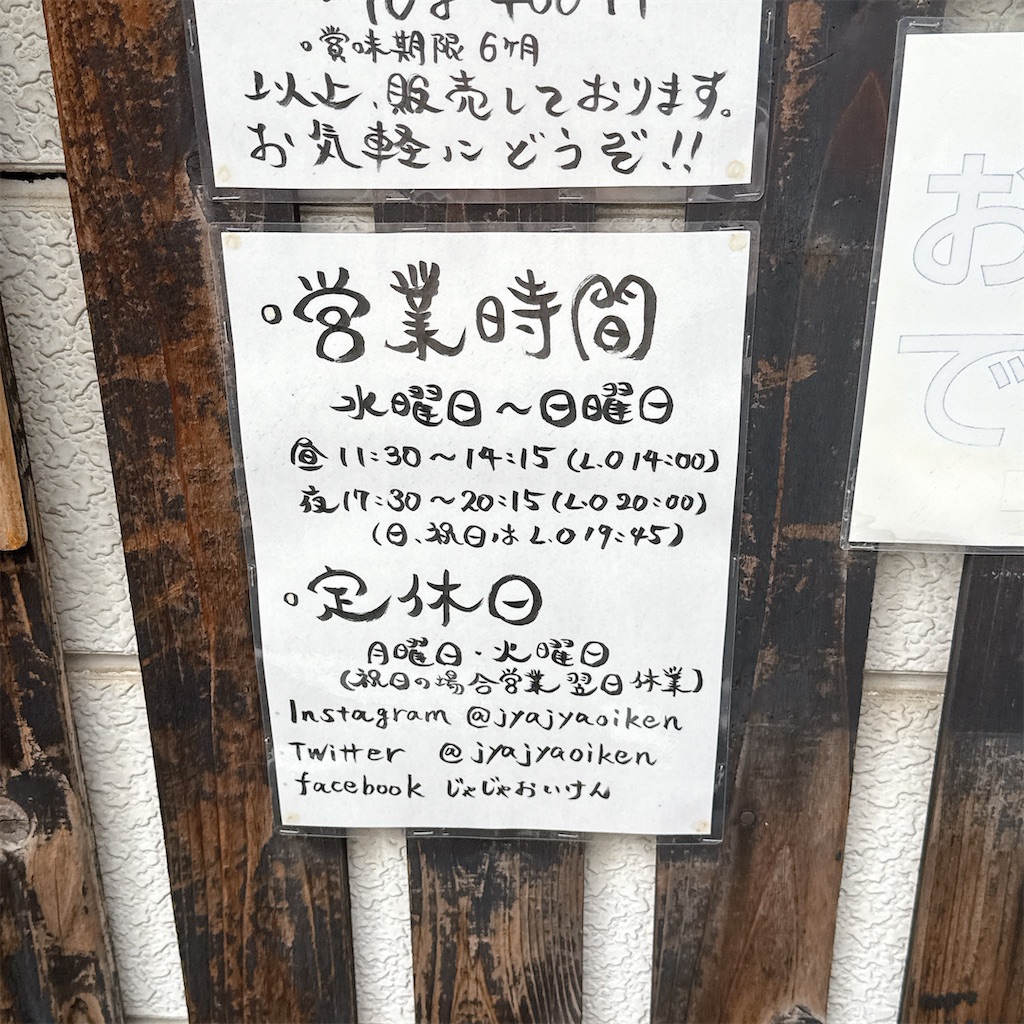 。賞味期限 6ヶ月
以上、販売しております。
お気軽にどうぞ!!
。営業時間
水曜日～日曜日
昼 11:30～14:15 (L.O 14:00)
夜 17:30～20:15 (L.O 20:00)
(日、祝日は L.O 19:45)
。定休日
月曜日・火曜日
(祝日の場合営業 翌日休業)
Instagram @jyajyaoiken
Twitter @jyajyaoiken
facebook じゃじゃおいけん